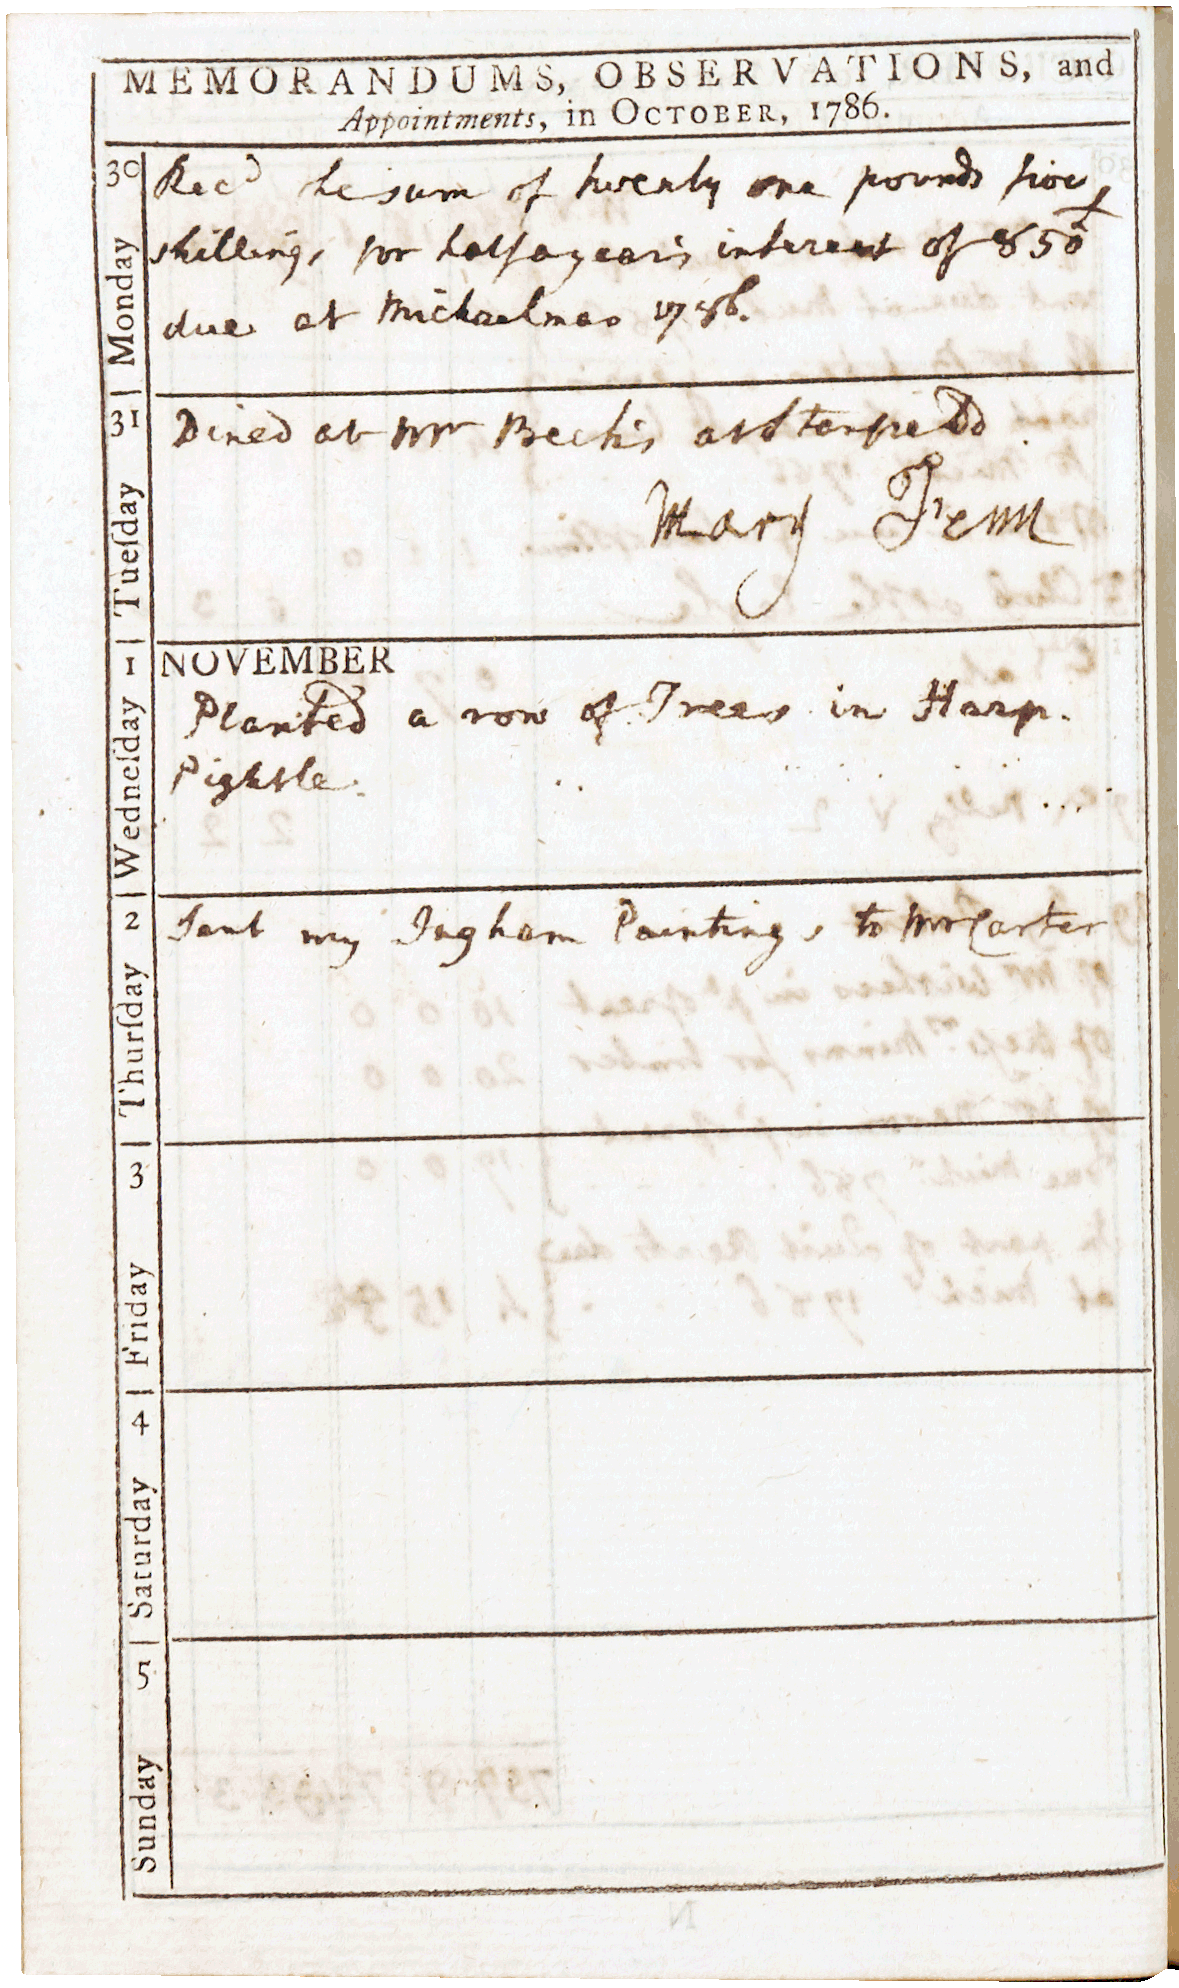 MEMORANDUMS, OBSERVATIONS, and
Appointments, in OCTOBER, 1786.
30 Monday
Recd the sum of twenty one pounds five
shillings for half a year's interest of 850£
due at Michaelmas 1786.
31 Tueſday
Dined at Mr Beck's at
Mary Fenn
1 Wedneſday
NOVEMBER
Planted a row of Trees in Harp.
Pightle.
2 Thurſday
Sent my Ingham Paintings to Mr Carter
3 Friday
4 Saturday
5 Sunday